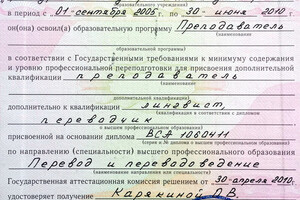 в период с 01 сентября 2005 по 30 июня 2010 г.
он(она) освоил(а) образовательную программу Преподаватель
(наименование
образовательной программы)
в соответствии с Государственными требованиями к минимуму содержания
и уровню профессиональной переподготовки для присвоения дополнительной
квалификации преподаватель
(наименование
дополнительной квалификации)
дополнительно к квалификации лингвист,
(квалификация в соответствии с дипломом
переводчик
о высшем профессиональном образовании)
присвоенной на основании диплома ВСА 1080411
(серия и № диплома о высшем профессиональном образовании)
по направлению (специальности) высшего профессионального образования
Перевод и переводоведение
(наименование направления (специальности)
Государственная аттестационная комиссия решением от 30 апреля 2010г.
удостоверяет получение Карякиной Л.В.